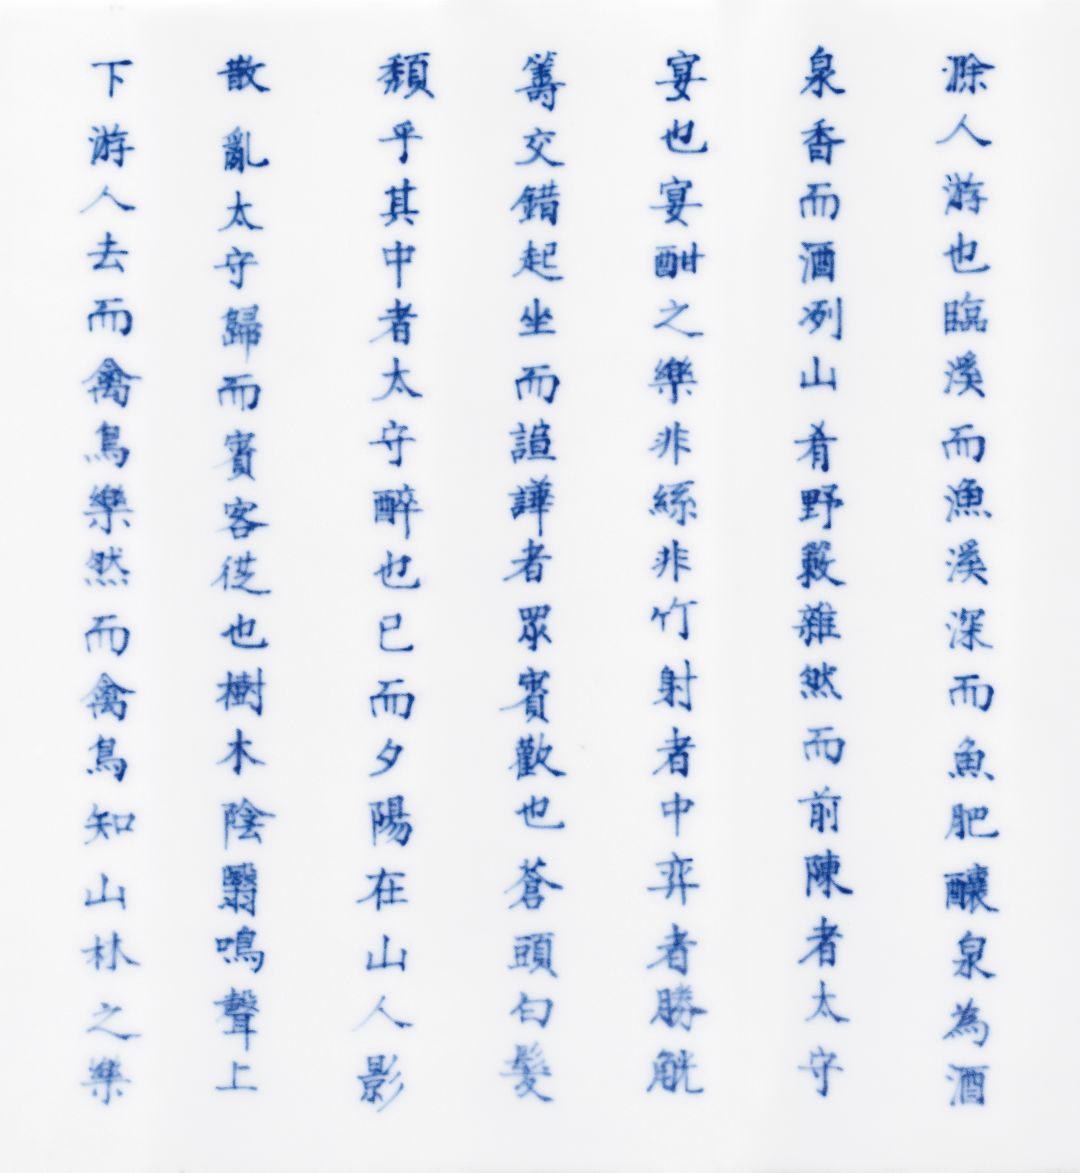 滁人游也臨溪而漁溪深而魚肥釀泉為酒
泉香而酒冽山肴野蔌雜然而前陳者太守
宴也宴酣之樂非絲非竹射者中弈者勝觥
籌交錯起坐而諠譁者眾賓歡也蒼頭白髮
頹乎其中者太守醉也已而夕陽在山人影
散亂太守歸而賓客從也樹木陰翳鳴聲上
下游人去而禽鳥樂然而禽鳥知山林之樂